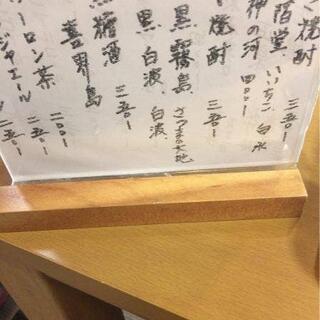 焼酎 三五〇-
階堂、いいちこ、白水
神の河 四〇〇-
焼酎 三五〇-
黒霧島、さつまの大地
黒白波、白波、
黒糖酒 三五〇-
喜界島
ーロン茶 二〇〇-
ジャエール 二五〇-
二五〇-